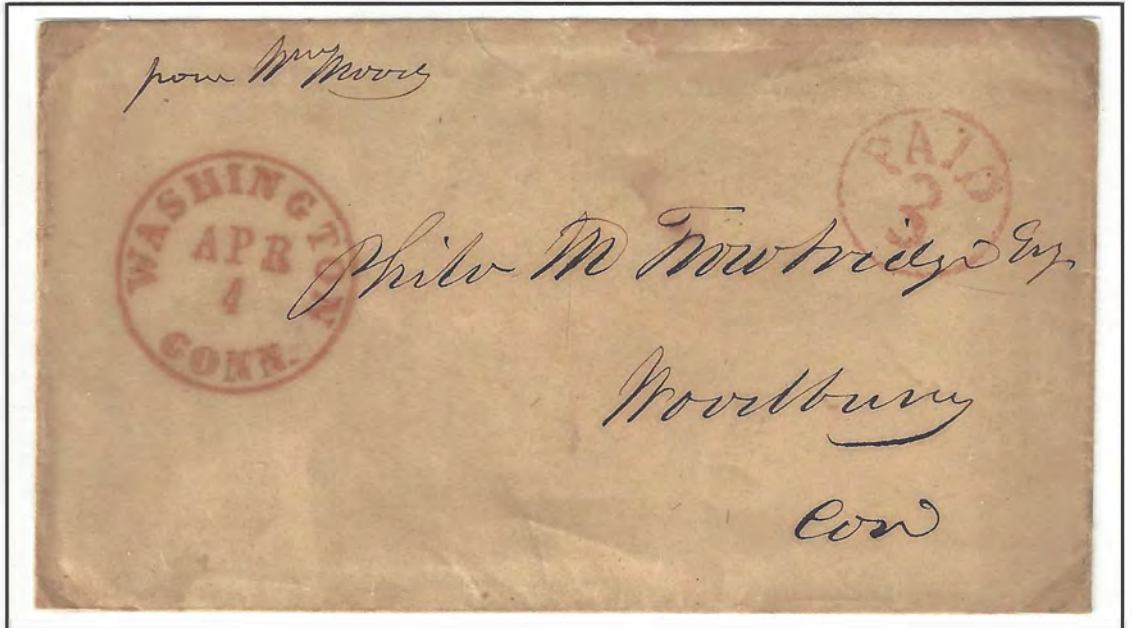 from Wm Moore
WASHINGTON
APR
4
CONN.
PAID
3
Philo M Trowbridge Esq
Woodbury
Con